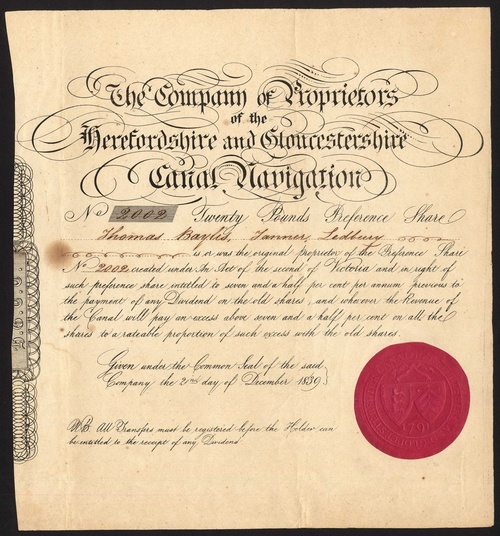 The Company of Proprietors
of the
Herefordshire and Gloucestershire
Canal Navigation
No 2002 Twenty Pounds Preference Share
Thomas Baylis, Tanner, Ledbury
is or was the original proprietor of the Preference Share
No 2002 created under An Act of the second of Victoria and in right of
such preference share intitled to seven and a half per cent per annum previous to
the payment of any Dividend on the old shares, and whenever the Revenue of
the Canal will pay an excess above seven and a half per cent on all the
shares to a rateable proportion of such excess with the old shares.
Given under the Common Seal of the said
Company the 2nd day of December 1839
NB All Transfers must be registered before the Holder can
be intitled to the receipt of any Dividend